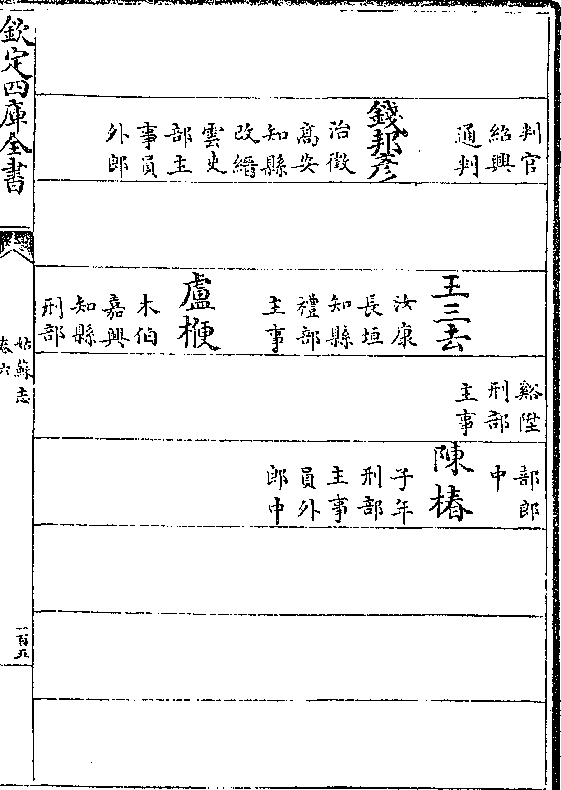 判官
紹興
通判
錢邦彥
治徵
高安
知縣
改縉
雲吏
部主
事員
外郎
王三去
汝康
長垣
知縣
禮部
主事
盧楩
木伯
嘉興
知縣
刑部
谿陞
刑部
主事
部郎
中
陳椿
子年
刑部
主事
員外
郎中
欽定四庫全書
姑蘇志
卷六
一百五